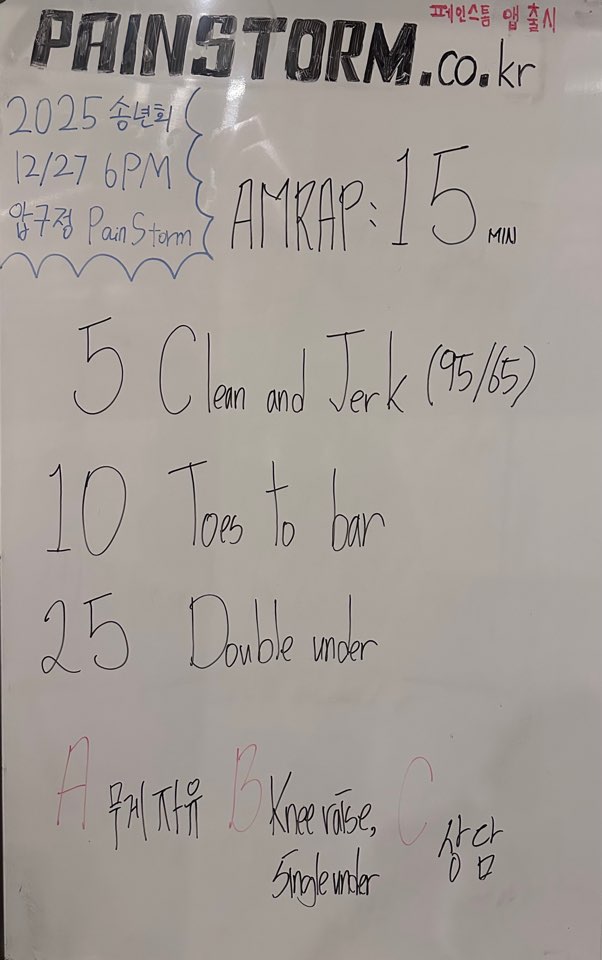 페인스톰 앱 출시
PAINSTORM.co.kr
2025 송년회
12/27 6PM
압구정 PainStorm
AMRAP: 15 MIN
5 Clean and Jerk (95/65)
10 Toes to bar
25 Double under
A 무게 자유 B Knee raise, C 상담
Single under